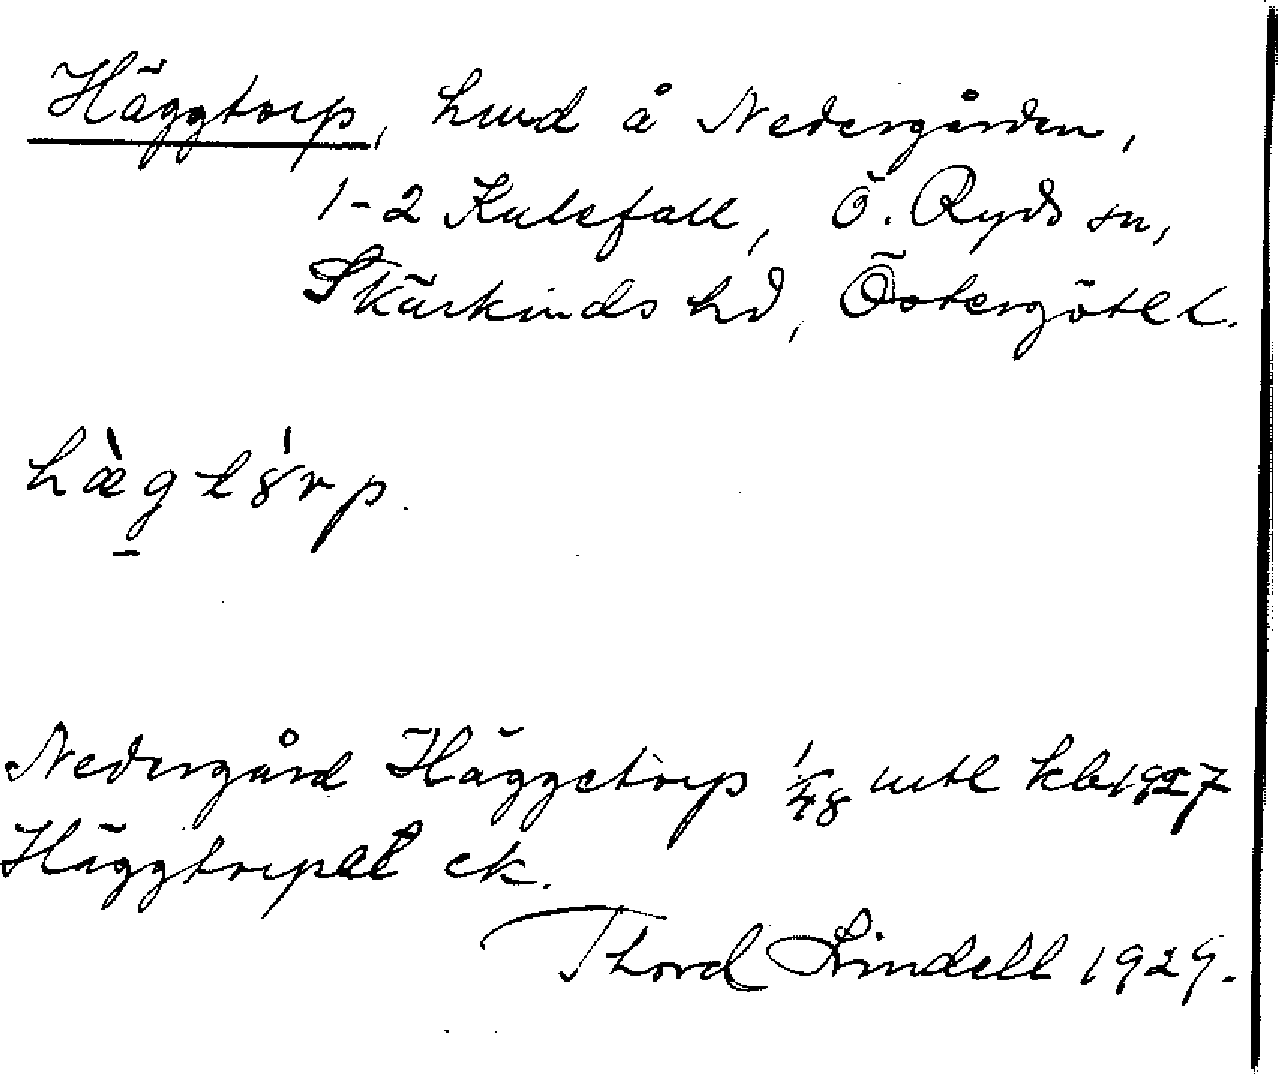 Häggtorp, hmd å Nedergården,
1-2 Kulefall, Ö. Ryds sn,
Skärkinds hd, Östergötl l.
hæ̀gtȣ́rp.
Nedergård Häggetorp 1/48 mtl kb 1927
Häggtorpet ek.
Thord Lindell 1929.